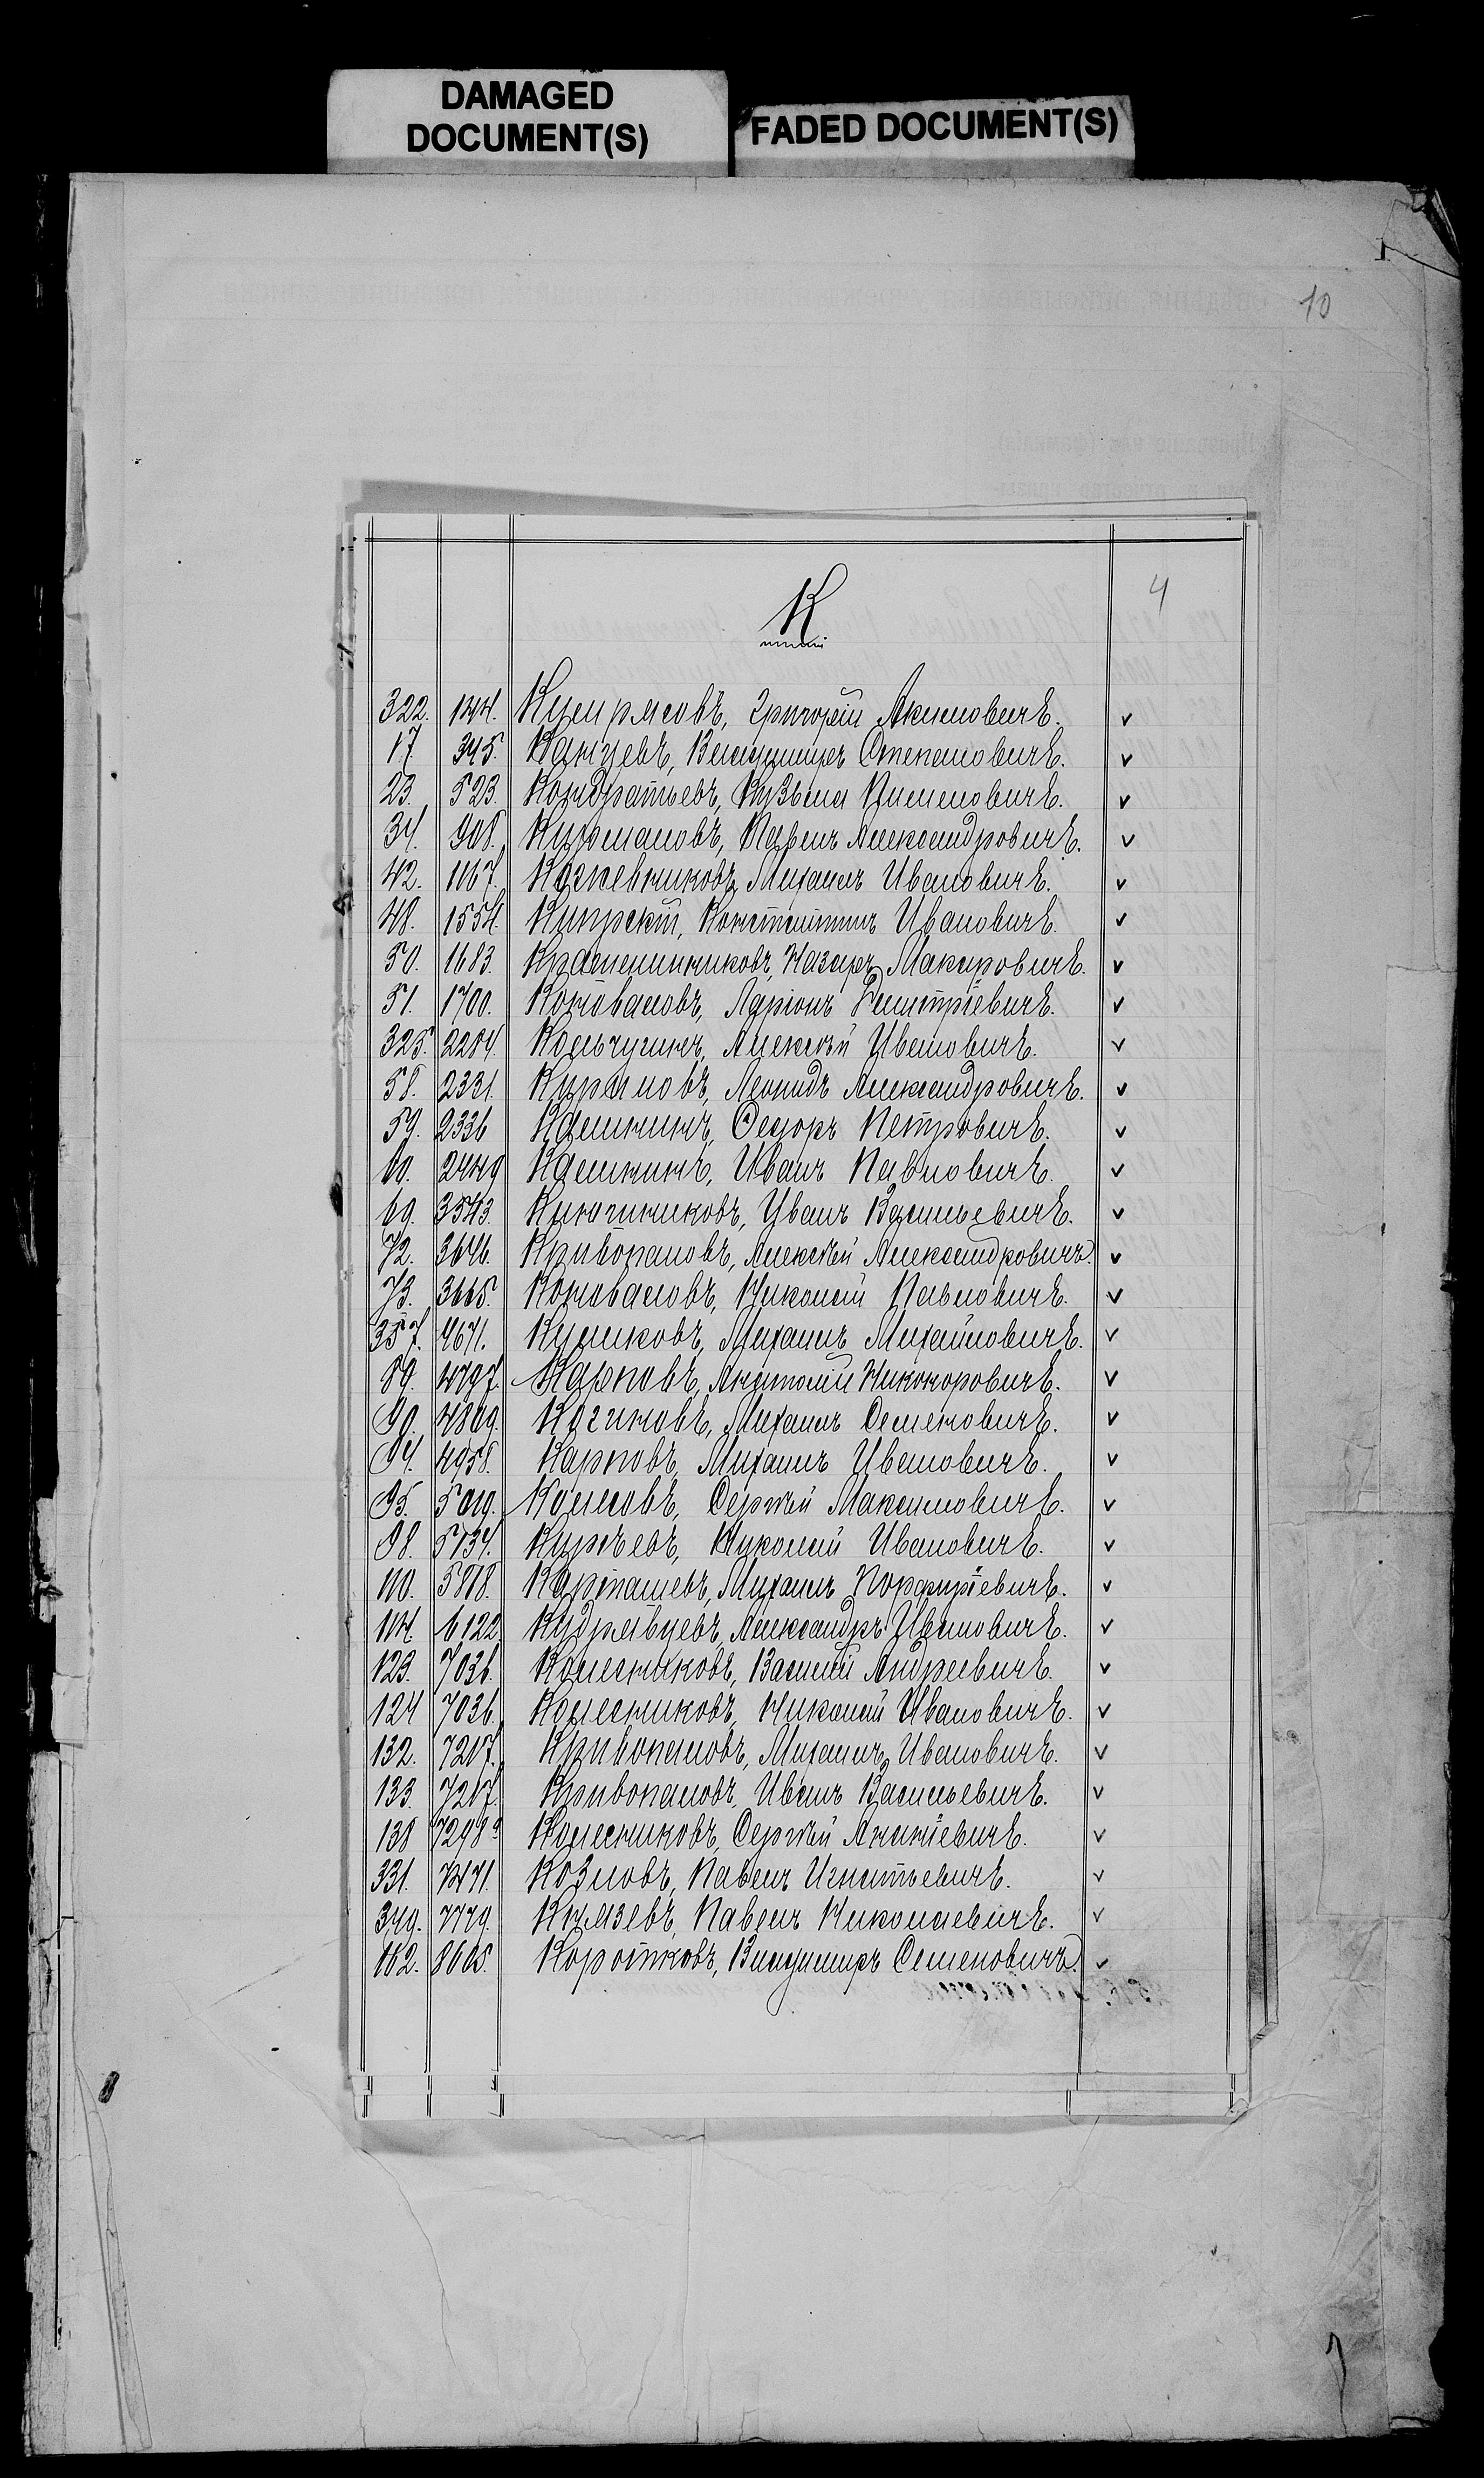 DAMAGED
DOCUMENT(S)
FADED DOCUMENT(S)
10
4
К
322. 144. Григорій Акимовичъ. v
17. 345. Канцевъ, Владиміръ Степановичъ. v
23. 523. Кондратьевъ, Кузьма Пименовичъ. v
34. 908. Кухмановъ, Павелъ Александровичъ. v
42. 1167. Кожевниковъ, Михаилъ Ивановичъ. v
48. 1554. Кипрскій, Константинъ Ивановичъ. v
50. 1683. Крашенинниковъ, Назаръ Макаровичъ. v
51. 1700. Коноваловъ, Ларіонъ Дмитріевичъ. v
325. 2284. Кольчугинъ, Алексѣй Ивановичъ. v
58. 2331. Леонидъ Александровичъ. v
59. 2336 Калинкинъ, Ѳедоръ Петровичъ. v
60. 2449 Калинкинъ, Иванъ Павловичъ. v
69. 3543. Ключниковъ, Иванъ Васильевичъ. v
72. 3646. Кривопаловъ, Алексѣй Александровичъ. v
73. 3665. Коноваловъ, Николай Павловичъ. v
357. 4671. Куликовъ, Михаилъ Михайловичъ. v
89. 4797. Карповъ, Анатолій Никоноровичъ. v
90. 4869. Михаилъ Семеновичъ. v
94. 4958. Карповъ, Михаилъ Ивановичъ. v
95. 5019. Колесовъ, Сергѣй Максимовичъ. v
98. 5134. Николай Ивановичъ. v
110. 5818. Карташевъ, Михаилъ Порфиріевичъ. v
114. 6122 Кудрявцевъ, Александръ Ивановичъ. v
123. 7036. Колесниковъ, Василій Андреевичъ. v
124 7036. Колесниковъ, Николай Ивановичъ. v
132. 7217. Кривопаловъ, Михаилъ Ивановичъ. v
133. 7217. Кривопаловъ, Иванъ Васильевичъ. v
138 7298а Колесниковъ, Сергѣй Ананіевичъ. v
331. 7471. Козловъ, Павелъ Игнатьевичъ. v
349. 7779. Князевъ, Павелъ Николаевичъ. v
162. 8605. Коротковъ, Владиміръ Семеновичъ. v